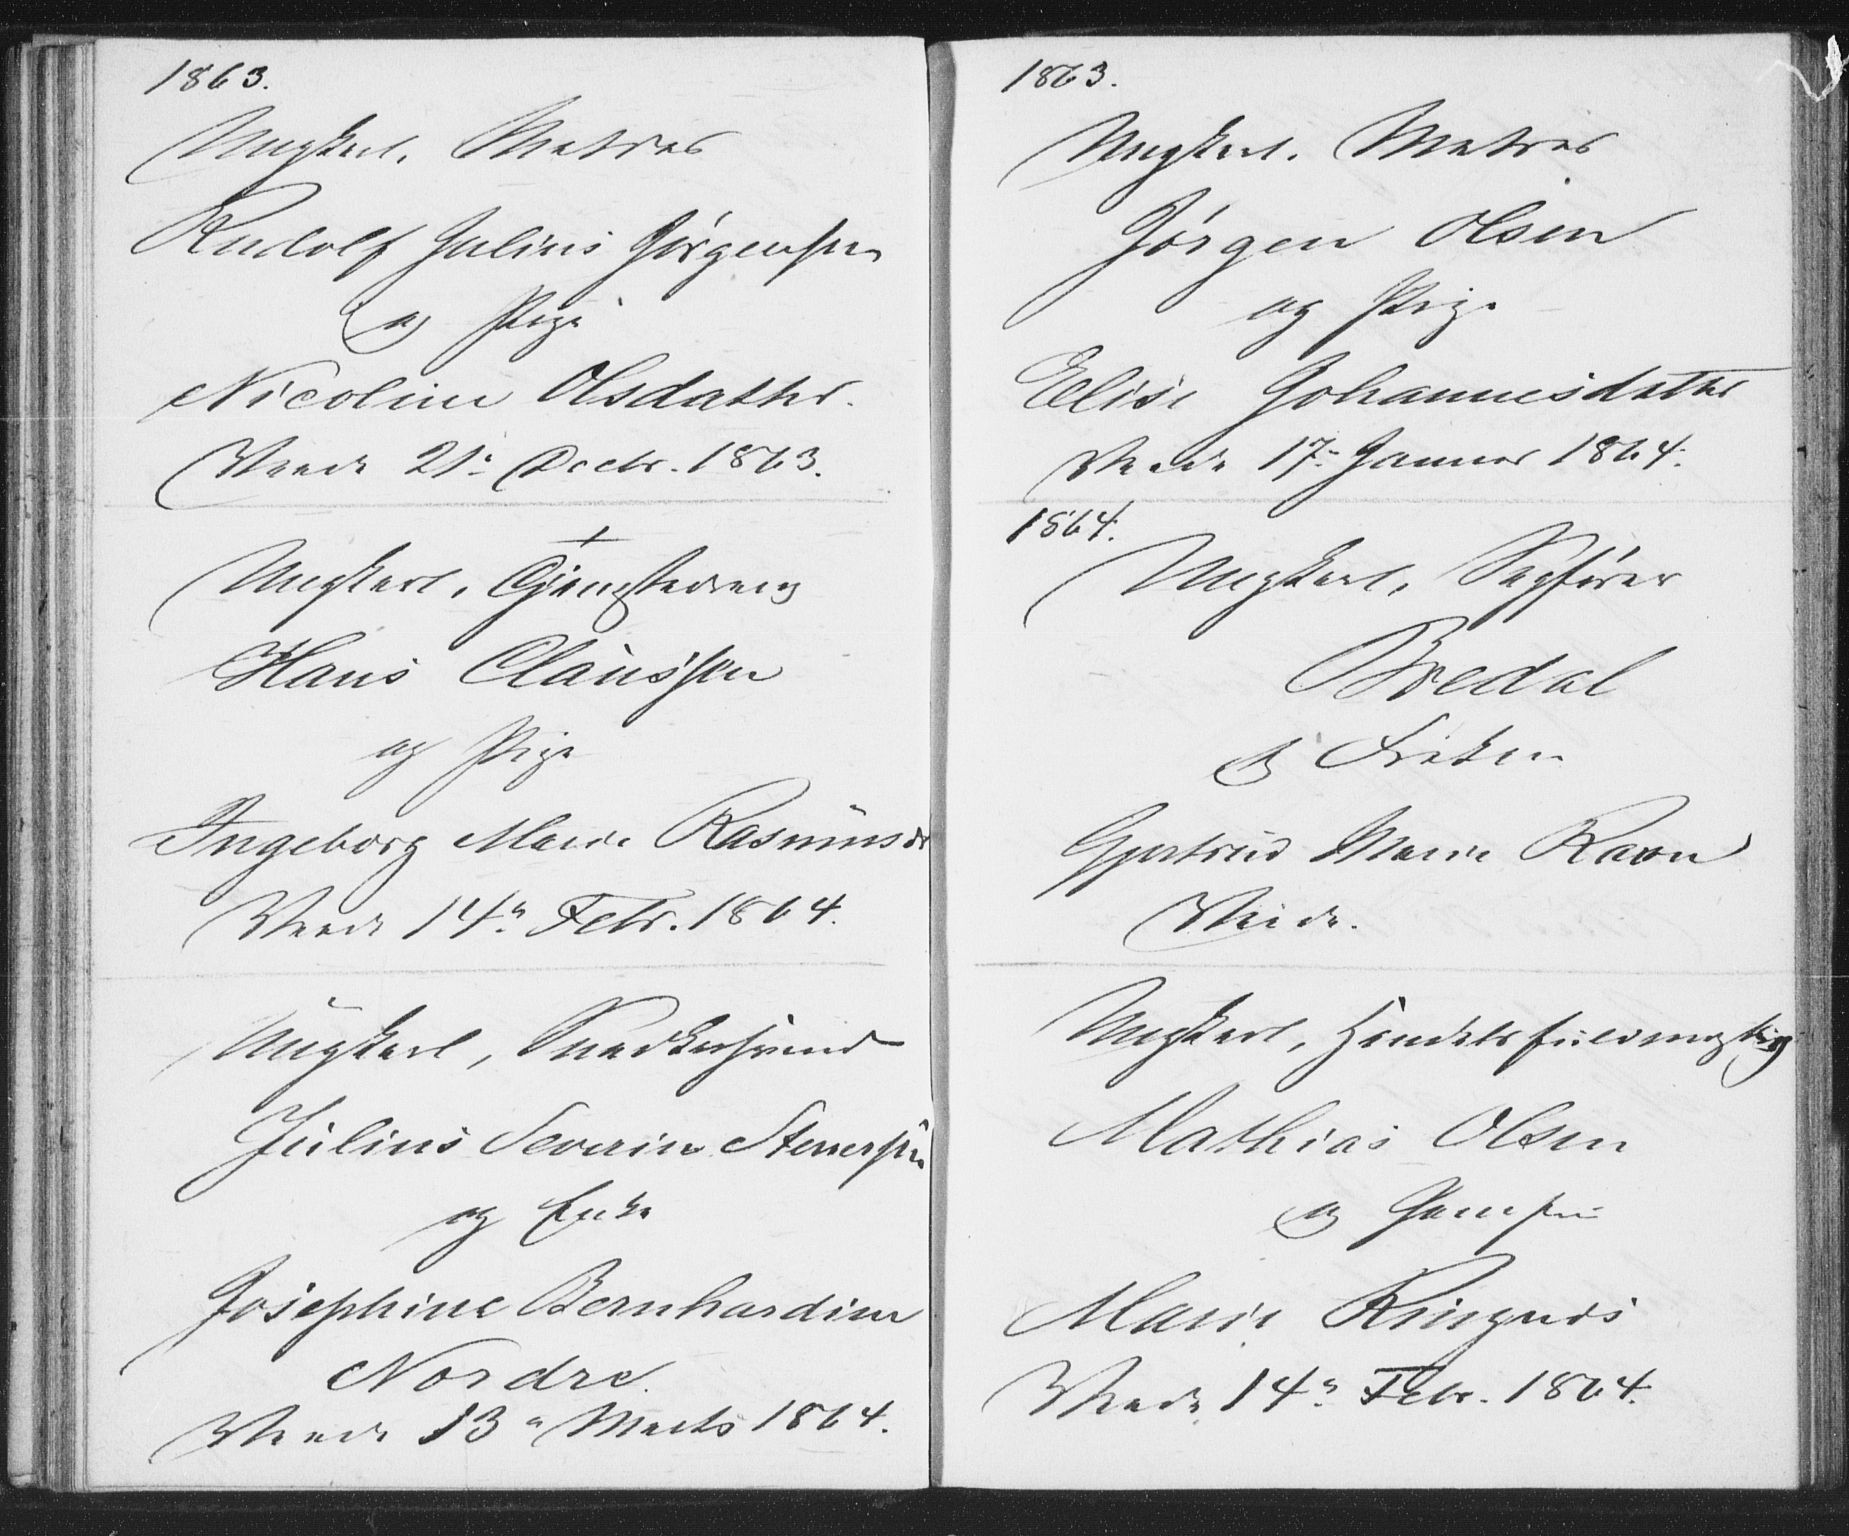 1863.
Ungkarl. Matros
Rudolf Julius Jørgensen
og Pige
Nicoline Olsdatter.
Viede 21de Decbr. 1863.
Ungkarl, Tjenestedreng
Hans Claussen
og Pige
Ingeborg Marie Rasmusdr
Viede 14de Febr. 1864.
Ungkarl, Snedkersvend
Julius Severin Stenersen
og Enke
Josephine Bernhardine
Nordre.
Viede 13de Marts 1864.
1863.
Ungkarl. Matros
Jörgen Olsen
og Pige
Elise Johannesdatter
Viede 17de Januar 1864.
1864.
Ungkarl, Sagförer
Bredal
og Frøken
Gjertrud Marie Ravn
Viede.
Ungkarl, Handelsfuldmægtig
Mathias Olsen
og Jomfru
Marie Ringnæs
Viede 14de Febr. 1864.